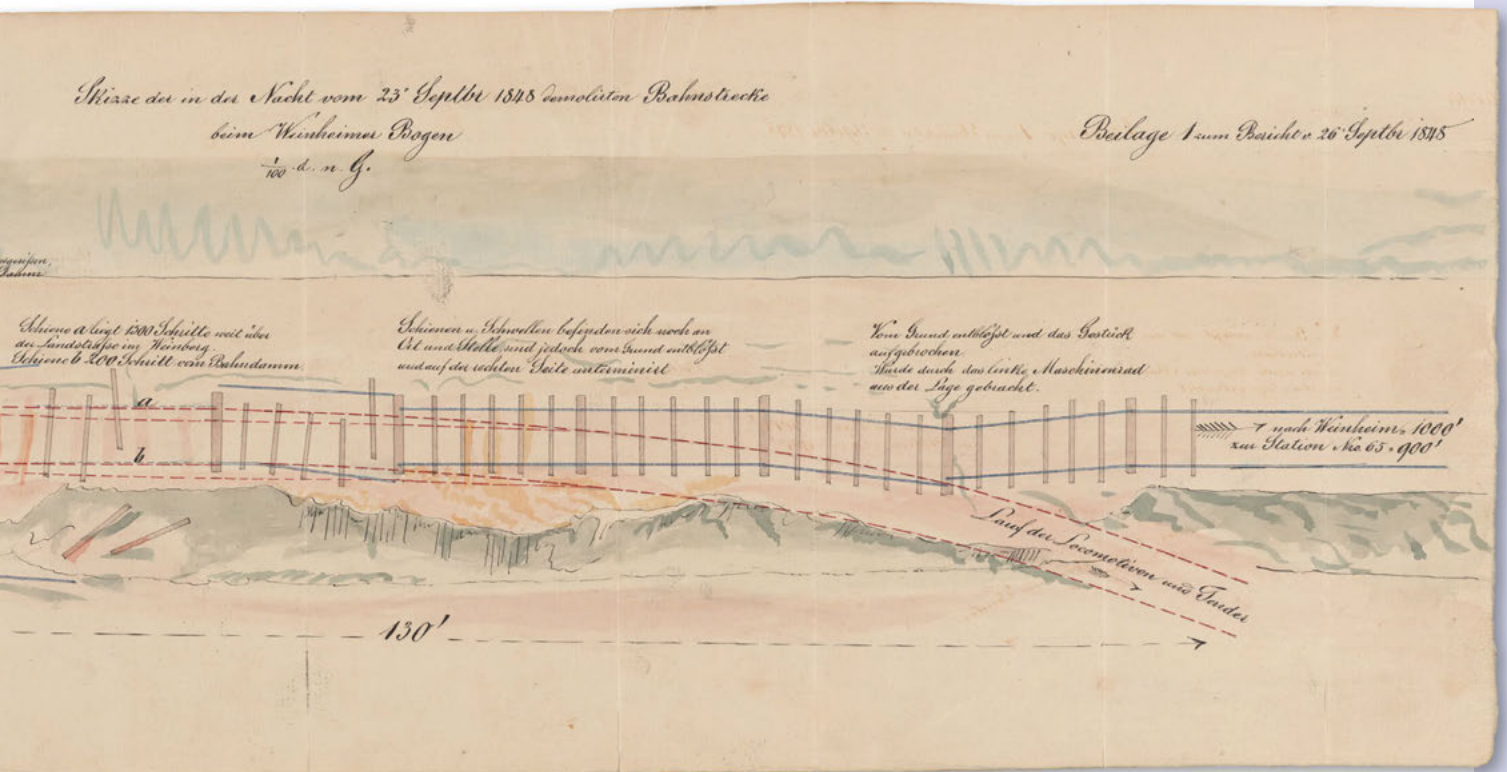 Skizze der in der Nacht vom 23' Septbr 1848 demolirten Bahnstrecke
beim Weinheimer Bogen
1/100 d. n. G.
Beilage 1 zum Bericht v. 26 Septbr 1848
Schiene a liegt 1300 Schritte weit über
der Landstraße im Weinberg.
Schiene b 200 Schritt vom Bahndamm.
Schienen u. Schwellen befinden sich noch an
Ort und Stelle, sind jedoch vom Grund entblößt
und auf der rechten Seite unterminirt
Vom Grund entblößt und das Gestück
aufgebrochen.
Wurde durch das linke Maschinenrad
aus der Lage gebracht.
a
b
nach Weinheim = 1000'
zur Station Nro 65 = 900'
Lauf der Locomotiven und Tender
130'